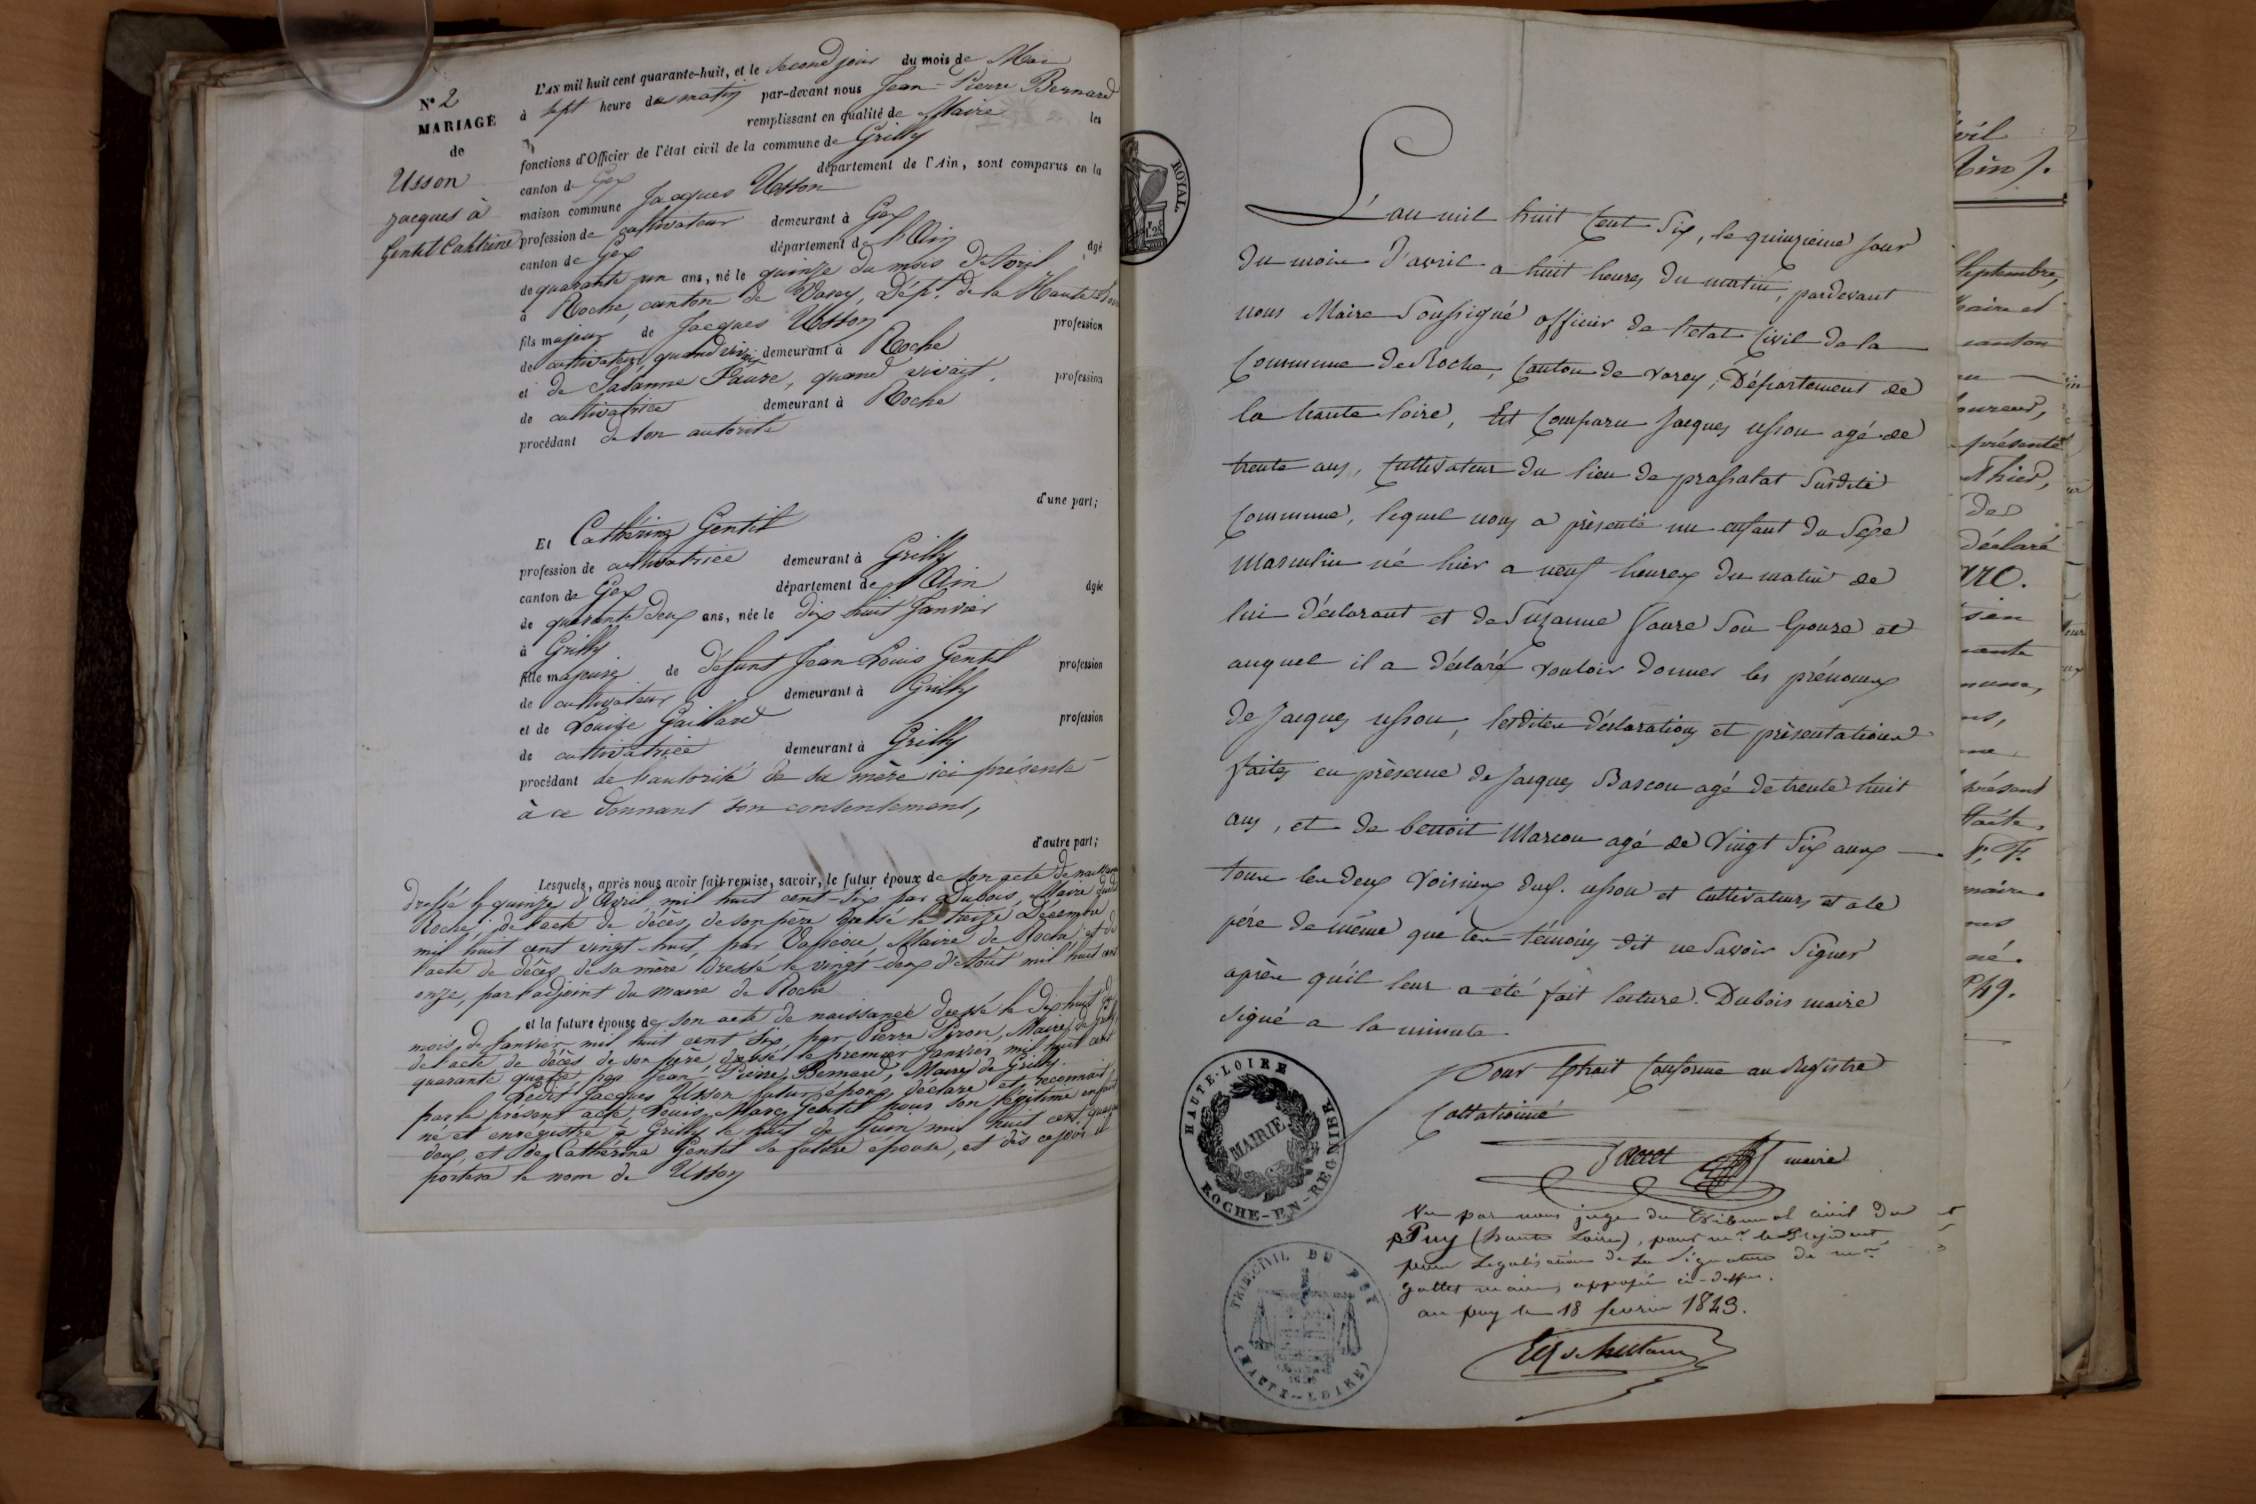 N° 2
MARIAGE
de
Usson
Jacques à
Gentil Cathrine
L'AN mil huit cent quarante-huit, et le second jour du mois de Mai
à sept heure du matin par-devant nous Jean-Pierre Bernard
remplissant en qualité de Maire les
fonctions d'Officier de l'état civil de la commune de Grilly
canton de Gex département de l'Ain, sont comparus en la
maison commune Jacques Usson
profession de cultivateur demeurant à Gex
canton de Gex département de l'Ain âgé
de quarante un ans, né le quinze du mois d'Avril
à Roche, canton de Vorey, Dépt. de la Haute-Loire
fils majeur de Jacques Usson profession
de cultivateur, quand vivait demeurant à Roche
et de Susanne Faure, quand vivait, profession
de cultivatrice demeurant à Roche
procédant de son autorité
d'une part;
Et Catherine Gentil
profession de cultivatrice demeurant à Grilly
canton de Gex département de l'Ain âgée
de quarante deux ans, née le dix huit Janvier
à Grilly
fille majeure de défunt Jean Louis Gentil profession
de cultivateur demeurant à Grilly
et de Louise Gaillard profession
de cultivatrice demeurant à Grilly
procédant de l'autorité de sa mère ici présente
à ce donnant son consentement,
d'autre part;
Lesquels, après nous avoir fait remise, savoir, le futur époux de son acte de naissance
dressé le quinze d'Avril mil huit cent-six par Dubois, Maire dudit
Roche, de l'acte de décès de son père dressé le treize Décembre
mil huit cent vingt-huit, par Maire de Roche et de
l'acte de décès de sa mère dressé le vingt-deux d'Août mil huit cent
onze, par l'adjoint du maire de Roche
et la future épouse de son acte de naissance dressé le dix huit du
mois de Janvier mil huit cent six, par Pierre Maire de Grilly,
de l'acte de décès de son père, dressé le premier Janvier mil huit cent
quarante quatre, par Jean-Pierre Bernard, Maire de Grilly.
Ledit Jacques Usson futur époux, déclare et reconnaît
par le présent acte, Louis Marc Gentil pour son légitime enfant
né et enregistré à Grilly le huit de Juin mil huit cent quarante
deux, et de Catherine Gentil la future épouse, et dès ce jour il
portera le nom de Usson
ROYAL
L'an mil huit Cent Six, le quinzieme Jour
du mois d'avril a huit heures du matin, pardevant
nous Maire Soussigné officier de l'etat Civil de la
Commune de Roche, Canton de vorey, Département de
la haute Loire, Est Comparu Jacques usson agé de
trente ans, Cultivateur du lieu de prassalat Susdite
Commune, lequel nous a présenté un enfant du Sexe
Masculin né hier a neuf heures du matin de
lui déclarant et de Suzanne faure Son Epouse et
auquel il a déclaré vouloir donner les prénoms
de Jacques usson, lesdites déclarations et présentations
faites en présence de Jacques Bascou agé de trente huit
ans, et de benoit Marcou agé de vingt Six ans
tous les deux voisins dud. usson et Cultivateurs et a le
père de même que les témoins dit ne Savoir Signer
après qu'il leur a été fait lecture. Dubois maire
Signé a la minute
Pour Extrait Conforme au Registre
Collationné
maire
HAUTE-LOIRE
MAIRIE
ROCHE-EN-REGNIER
Vu par nous juge du tribunal civil du
Puy (haute Loire), pour mr. le Président,
pour Légalisation de la Signature de mr.
maire, apposée ci-dessus.
au puy le 18 fevrier 1843.
TRIB. CIVIL DU PUY
(HAUTE-LOIRE)
Septembre,
canton
présenté
des
déclaré